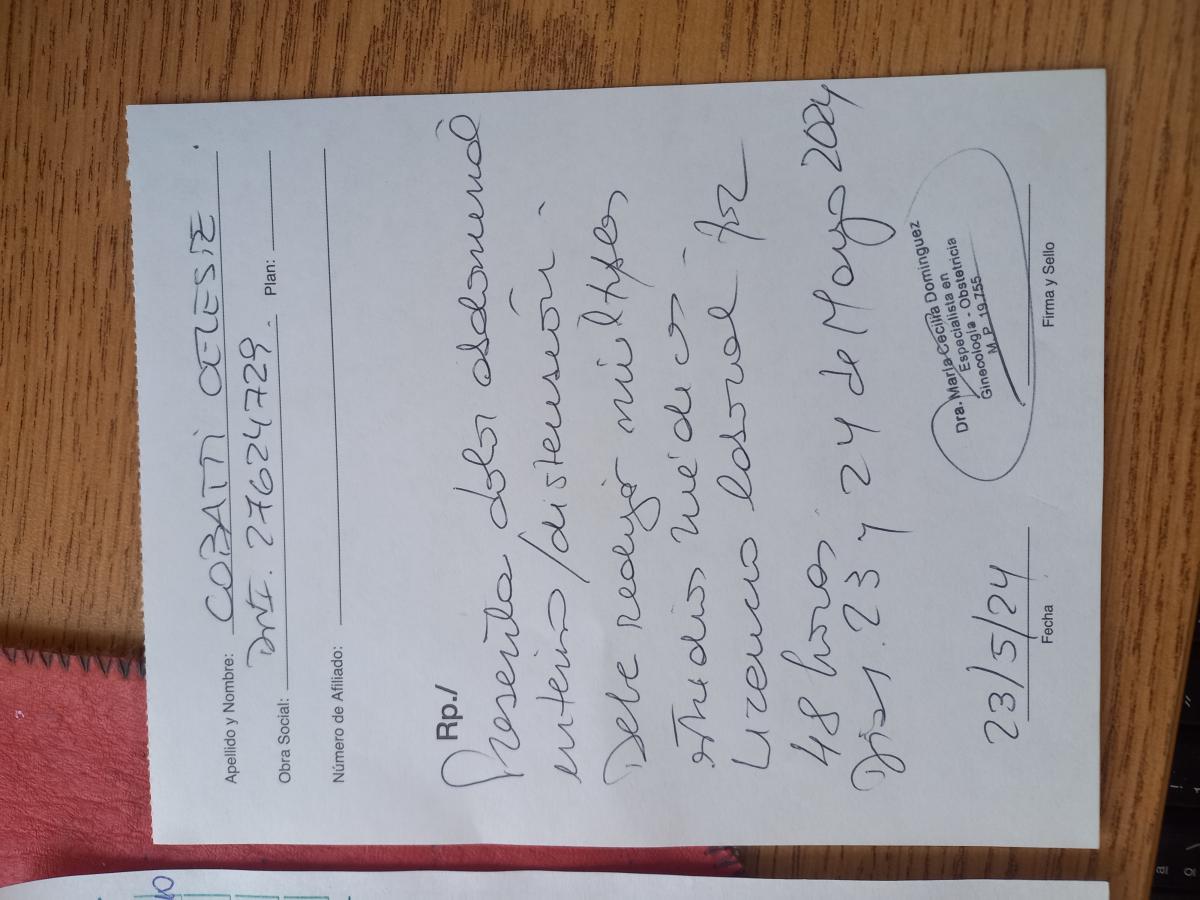 Apellido y Nombre: COBATTI
DNI. 27624729.
Obra Social: Plan:
Número de Afiliado:
Rp./
Presenta dolor abdominal
/distensión.
Debe realizar múltiples
estudios médicos.
Licencia laboral por
48 horas
Días. 23 y 24 de Mayo 2024
Dra. María Cecilia Dominguez
Especialista en
Ginecología - Obstetricia
M.P. 19755
23/5/24
Fecha
Firma y Sello